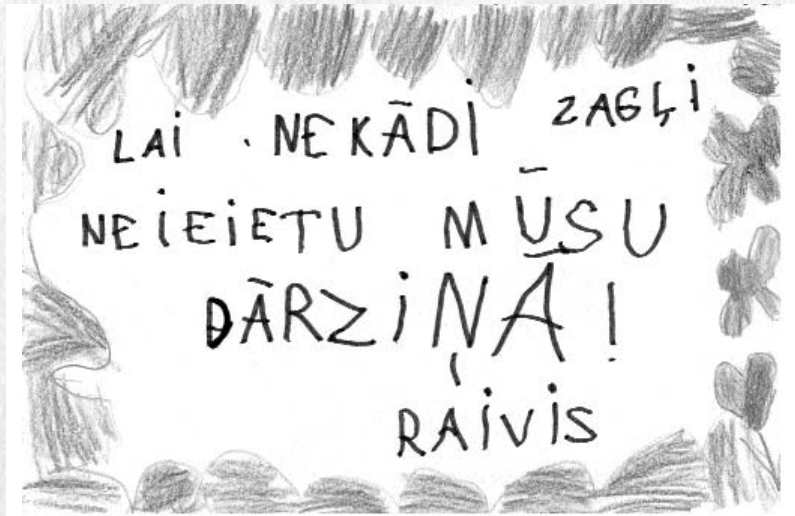 LAi NEKĀDi ZAGĻi
NEiEiETU MŪSU
DĀRZiŅĀ!
RAiViS